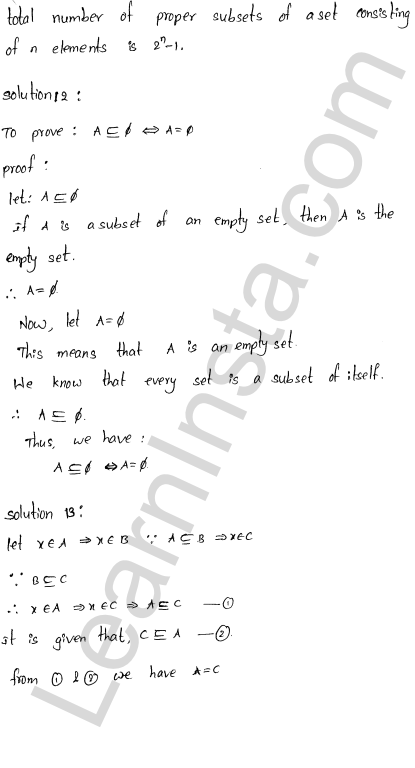 total number of proper subsets of a set consisting
of n elements is 2ⁿ-1.
Solution 12 :
To prove : A ⊆ ϕ ⇔ A = ϕ
proof :
let: A ⊆ ϕ
if A is a subset of an empty set, then A is the
empty set.
∴ A = ϕ
Now, let A = ϕ
This means that A is an empty set.
We know that every set is a subset of itself.
∴ A ⊆ ϕ.
Thus, we have :
A ⊆ ϕ ⇔ A = ϕ.
Solution 13 :
let x ∈ A ⇒ x ∈ B ∵ A ⊆ B ⇒ x ∈ C
∵ B ⊆ C
∴ x ∈ A ⇒ x ∈ C ⇒ A ⊆ C —①
it is given that, C ⊆ A —②.
from ① & ② we have A = C
LearnInsta.com